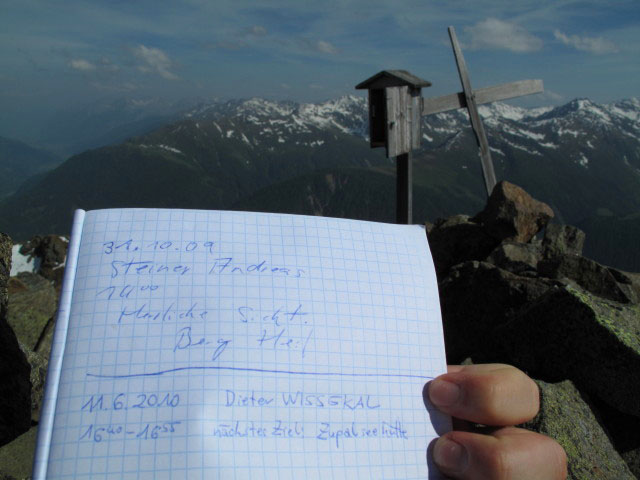 31.10.09
Steiner Andreas
14⁰⁰
Herrliche Sicht.
Berg Heil
11.6.2010 Dieter WISSEKAL
16⁴⁰-16⁵⁵ nächstes Ziel: Zupalseehütte